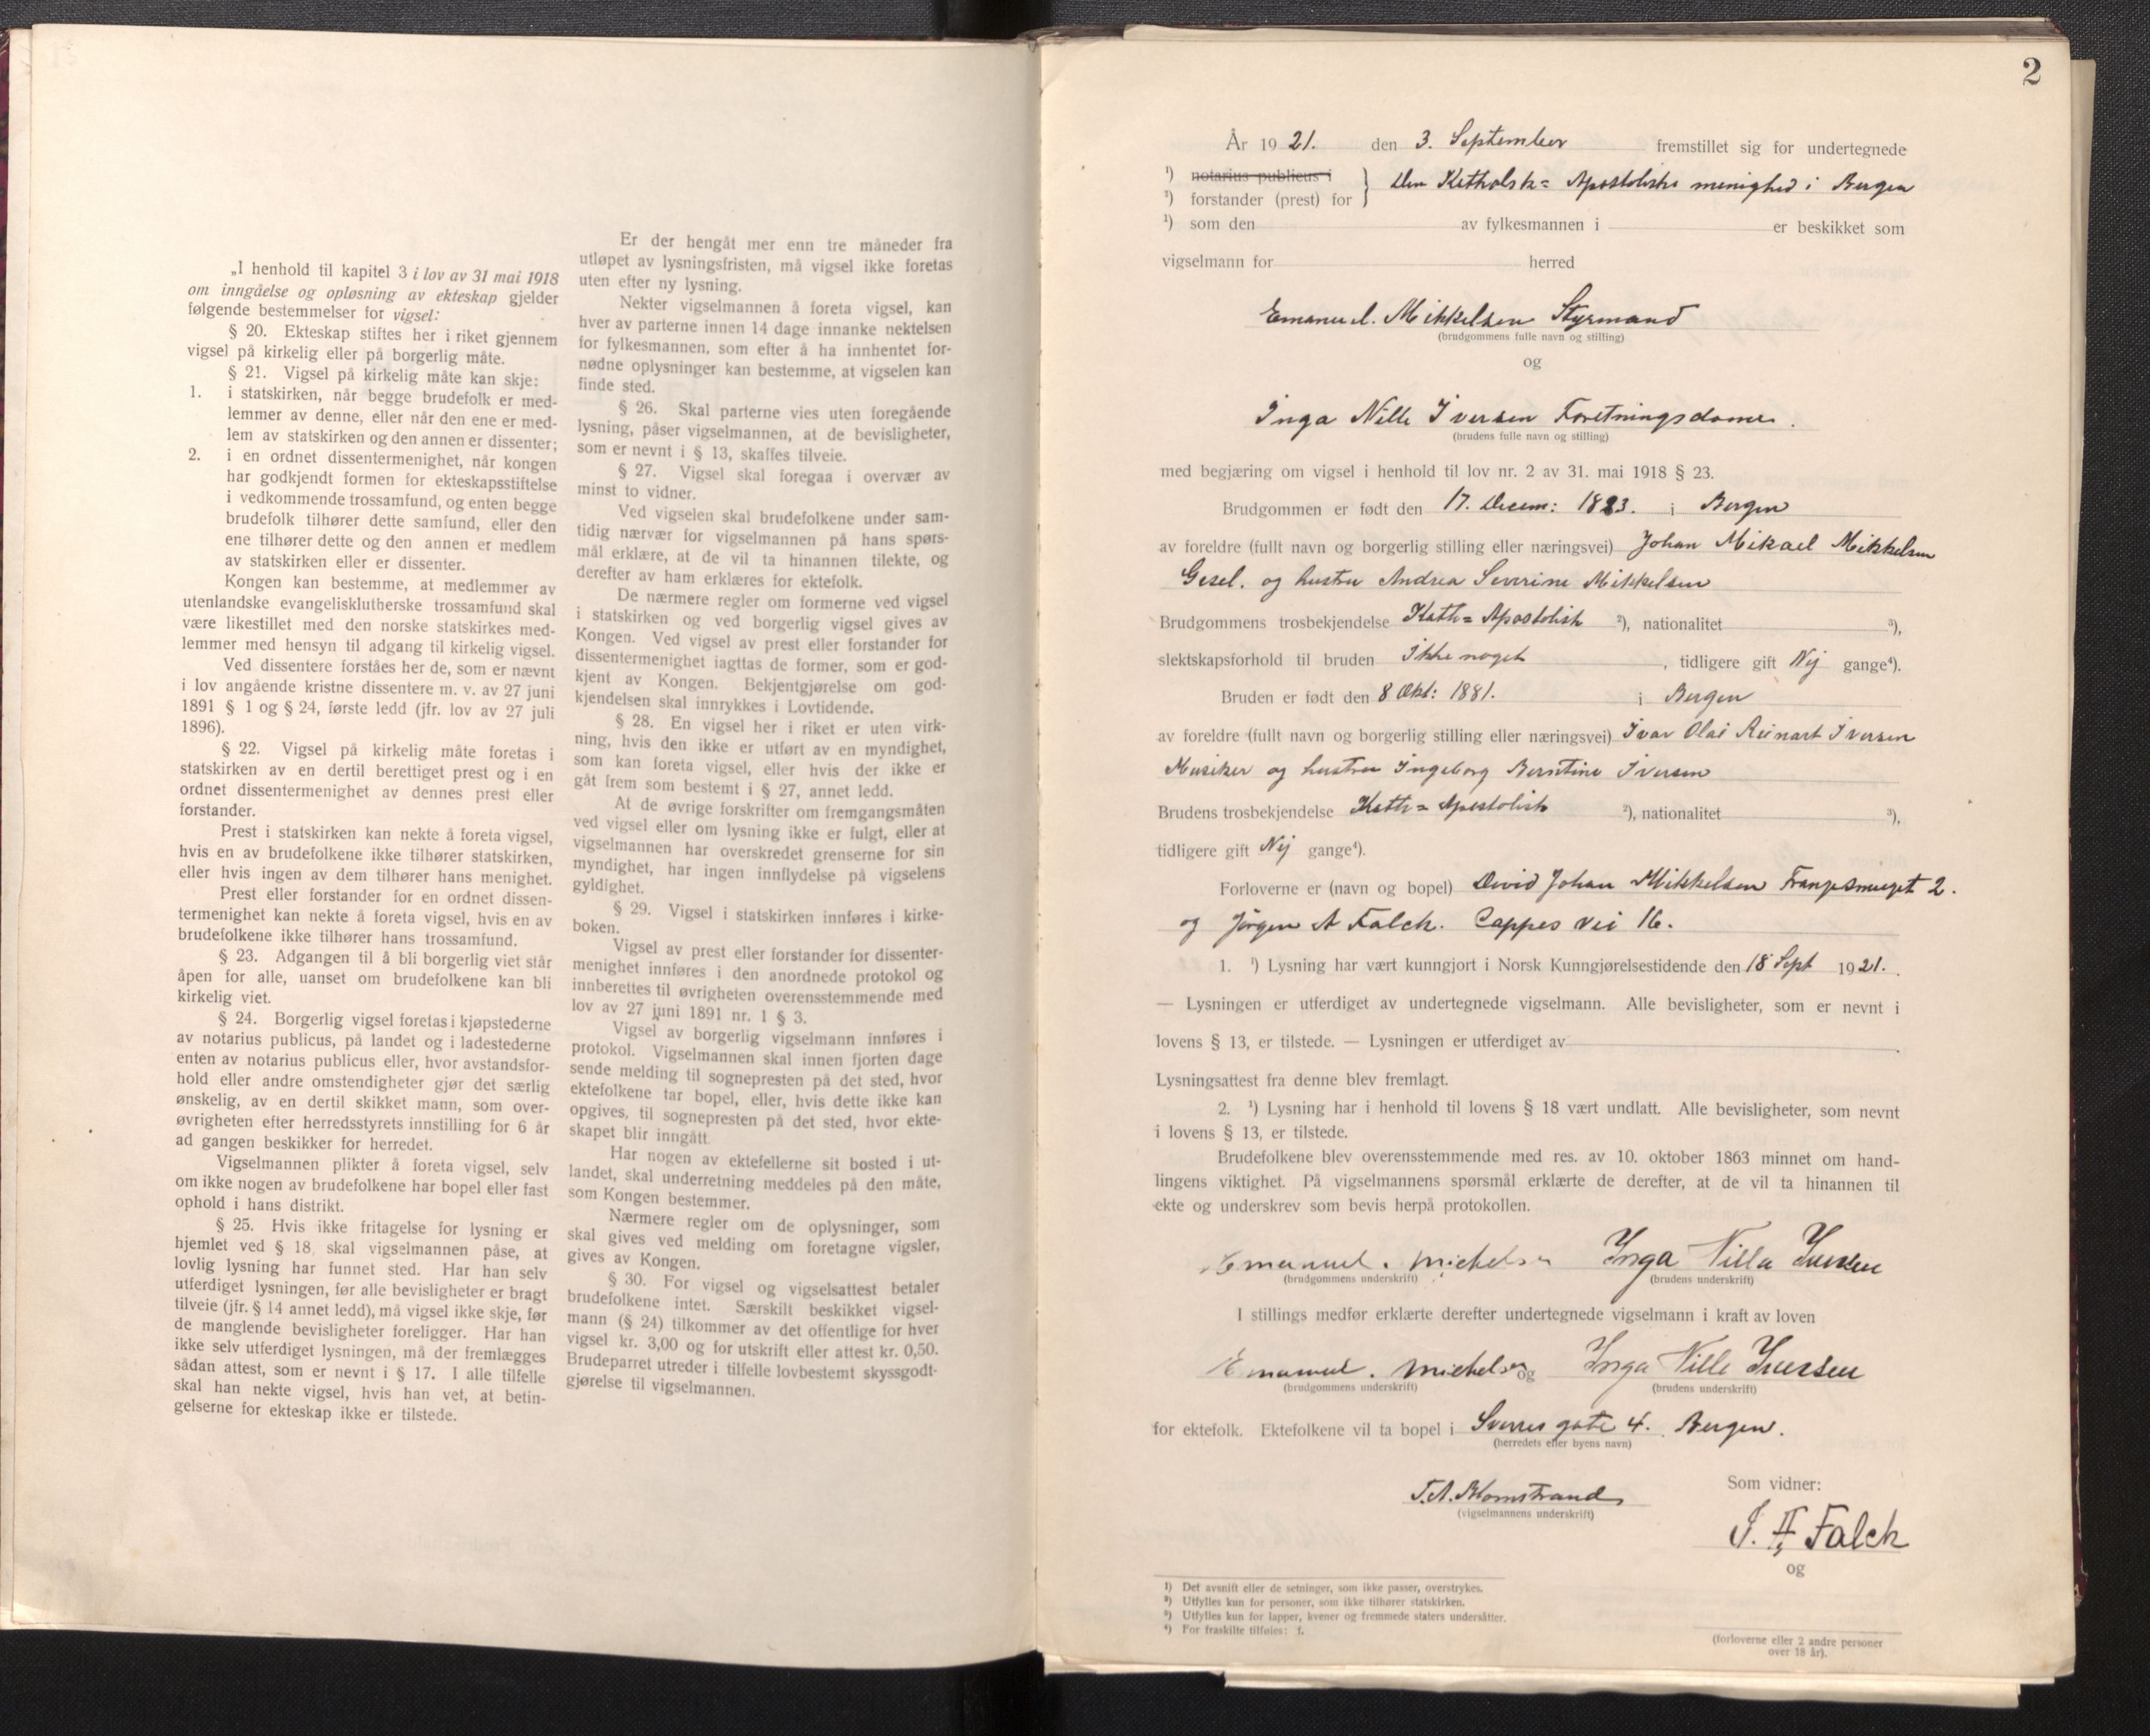 „I henhold til kapitel 3 i lov av 31 mai 1918
om inngåelse og opløsning av ekteskap gjelder
følgende bestemmelser for vigsel:
§ 20. Ekteskap stiftes her i riket gjennem
vigsel på kirkelig eller på borgerlig måte.
§ 21. Vigsel på kirkelig måte kan skje:
1. i statskirken, når begge brudefolk er med-
lemmer av denne, eller når den ene er med-
lem av statskirken og den annen er dissenter;
2. i en ordnet dissentermenighet, når kongen
har godkjendt formen for ekteskapsstiftelse
i vedkommende trossamfund, og enten begge
brudefolk tilhører dette samfund, eller den
ene tilhører dette og den annen er medlem
av statskirken eller er dissenter.
Kongen kan bestemme, at medlemmer av
utenlandske evangelisklutherske trossamfund skal
være likestillet med den norske statskirkes med-
lemmer med hensyn til adgang til kirkelig vigsel.
Ved dissentere forståes her de, som er nævnt
i lov angående kristne dissentere m. v. av 27 juni
1891 § 1 og § 24, første ledd (jfr. lov av 27 juli
1896).
§ 22. Vigsel på kirkelig måte foretas i
statskirken av en dertil berettiget prest og i en
ordnet dissentermenighet av dennes prest eller
forstander.
Prest i statskirken kan nekte å foreta vigsel,
hvis en av brudefolkene ikke tilhører statskirken,
eller hvis ingen av dem tilhører hans menighet.
Prest eller forstander for en ordnet dissen-
termenighet kan nekte å foreta vigsel, hvis en av
brudefolkene ikke tilhører hans trossamfund.
§ 23. Adgangen til å bli borgerlig viet står
åpen for alle, uanset om brudefolkene kan bli
kirkelig viet.
§ 24. Borgerlig vigsel foretas i kjøpstederne
av notarius publicus, på landet og i ladestederne
enten av notarius publicus eller, hvor avstandsfor-
hold eller andre omstendigheter gjør det særlig
ønskelig, av en dertil skikket mann, som over-
øvrigheten efter herredsstyrets innstilling for 6 år
ad gangen beskikker for herredet.
Vigselmannen plikter å foreta vigsel, selv
om ikke nogen av brudefolkene har bopel eller fast
ophold i hans distrikt.
§ 25. Hvis ikke fritagelse for lysning er
hjemlet ved § 18, skal vigselmannen påse, at
lovlig lysning har funnet sted. Har han selv
utferdiget lysningen, før alle bevisligheter er bragt
tilveie (jfr. § 14 annet ledd), må vigsel ikke skje, før
de manglende bevisligheter foreligger. Har han
ikke selv utferdiget lysningen, må der fremlægges
sådan attest, som er nevnt i § 17. I alle tilfelle
skal han nekte vigsel, hvis han vet, at betin-
gelserne for ekteskap ikke er tilstede.
Er der hengåt mer enn tre måneder fra
utløpet av lysningsfristen, må vigsel ikke foretas
uten efter ny lysning.
Nekter vigselmannen å foreta vigsel, kan
hver av parterne innen 14 dage innanke nektelsen
for fylkesmannen, som efter å ha innhentet for-
nødne oplysninger kan bestemme, at vigselen kan
finde sted.
§ 26. Skal parterne vies uten foregående
lysning, påser vigselmannen, at de bevisligheter,
som er nevnt i § 13, skaffes tilveie.
§ 27. Vigsel skal foregaa i overvær av
minst to vidner.
Ved vigselen skal brudefolkene under sam-
tidig nærvær for vigselmannen på hans spørs-
mål erklære, at de vil ta hinannen tilekte, og
derefter av ham erklæres for ektefolk.
De nærmere regler om formerne ved vigsel
i statskirken og ved borgerlig vigsel gives av
Kongen. Ved vigsel av prest eller forstander for
dissentermenighet iagttas de former, som er god-
kjent av Kongen. Bekjentgjørelse om god-
kjendelsen skal innrykkes i Lovtidende.
§ 28. En vigsel her i riket er uten virk-
ning, hvis den ikke er utført av en myndighet,
som kan foreta vigsel, eller hvis der ikke er
gåt frem som bestemt i § 27, annet ledd.
At de øvrige forskrifter om fremgangsmåten
ved vigsel eller om lysning ikke er fulgt, eller at
vigselmannen har overskredet grenserne for sin
myndighet, har ingen innflydelse på vigselens
gyldighet.
§ 29. Vigsel i statskirken innføres i kirke-
boken.
Vigsel av prest eller forstander for dissenter-
menighet innføres i den anordnede protokol og
innberettes til øvrigheten overensstemmende med
lov av 27 juni 1891 nr. 1 § 3.
Vigsel av borgerlig vigselmann innføres i
protokol. Vigselmannen skal innen fjorten dage
sende melding til sognepresten på det sted, hvor
ektefolkene tar bopel, eller, hvis dette ikke kan
opgives, til sognepresten på det sted, hvor ekte-
skapet blir inngått.
Har nogen av ektefellerne sit bosted i ut-
landet, skal underretning meddeles på den måte,
som Kongen bestemmer.
Nærmere regler om de oplysninger, som
skal gives ved melding om foretagne vigsler,
gives av Kongen.
§ 30. For vigsel og vigselsattest betaler
brudefolkene intet. Særskilt beskikket vigsel-
mann (§ 24) tilkommer av det offentlige for hver
vigsel kr. 3,00 og for utskrift eller attest kr. 0,50.
Brudeparret utreder i tilfelle lovbestemt skyssgodt-
gjørelse til vigselmannen.
2
År 1921. den 3. September fremstillet sig for undertegnede
¹) notarius publicus i
¹) forstander (prest) for } Den Katholsk= Apostoliske menighed i Bergen
¹) som den av fylkesmannen i er beskikket som
vigselmann for herred
Emanuel. Mikkelsen Styrmand
(brudgommens fulle navn og stilling)
og
Inga Nille Iversen Foretningsdame.
(brudens fulle navn og stilling)
med begjæring om vigsel i henhold til lov nr. 2 av 31. mai 1918 § 23.
Brudgommen er født den 17. Decem: 1883. i Bergen
av foreldre (fullt navn og borgerlig stilling eller næringsvei) Johan Mikael Mikkelsen
Gesel. og hustru Andrea Severine Mikkelsen
Brudgommens trosbekjendelse Kath= Apostolisk ²), nationalitet ³),
slektskapsforhold til bruden Ikke noget, tidligere gift Nej gange⁴).
Bruden er født den 8 Okt: 1881. i Bergen
av foreldre (fullt navn og borgerlig stilling eller næringsvei) Ivar Olai Reinart Iversen
Musiker og hustru Ingeborg Berntine Iversen
Brudens trosbekjendelse Kath= Apostolisk ²), nationalitet ³),
tidligere gift Nej gange⁴).
Forloverne er (navn og bopel) David Johan Mikkelsen 2.
og Jörgen A Falck. Cappes vei 16.
1. ¹) Lysning har vært kunngjort i Norsk Kunngjørelsestidende den 18 Sept 1921.
— Lysningen er utferdiget av undertegnede vigselmann. Alle bevisligheter, som er nevnt i
lovens § 13, er tilstede. — Lysningen er utferdiget av .
Lysningsattest fra denne blev fremlagt.
2. ¹) Lysning har i henhold til lovens § 18 vært undlatt. Alle bevisligheter, som nevnt
i lovens § 13, er tilstede.
Brudefolkene blev overensstemmende med res. av 10. oktober 1863 minnet om hand-
lingens viktighet. På vigselmannens spørsmål erklærte de derefter, at de vil ta hinannen til
ekte og underskrev som bevis herpå protokollen.
Emanuel. Michelsen Inga Nille Iversen
(brudgommens underskrift) (brudens underskrift)
I stillings medfør erklærte derefter undertegnede vigselmann i kraft av loven
Emanuel. Michelsen og Inga Nille Iversen
(brudgommens underskrift) (brudens underskrift)
for ektefolk. Ektefolkene vil ta bopel i Sverres gate 4. Bergen.
(herredets eller byens navn)
T.A. Blomstrand
(vigselmannens underskrift)
Som vidner:
Falck
og
(forloverne eller 2 andre personer
over 18 år).
¹) Det avsnitt eller de setninger, som ikke passer, overstrykes.
²) Utfylles kun for personer, som ikke tilhører statskirken.
³) Utfylles kun for lapper, kvener og fremmede staters undersåtter.
⁴) For fraskilte tilføies: f.